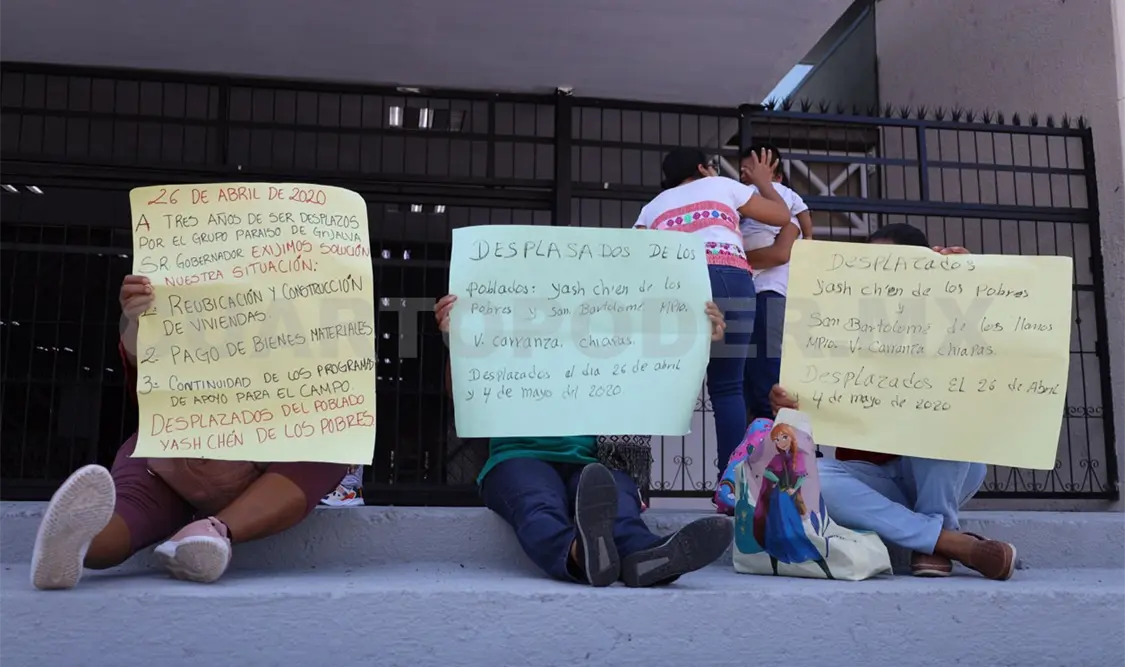 26 DE ABRIL DE 2020
A TRES AÑOS DE SER DESPLAZOS
POR EL GRUPO PARAISO DE GRIJALVA
SR GOBERNADOR EXIJIMOS SOLUCIÓN
NUESTRA SITUACIÓN:
1- REUBICACIÓN Y CONSTRUCCIÓN
DE VIVIENDAS.
2- PAGO DE BIENES MATERIALES
3- CONTINUIDAD DE LOS PROGRAMAS
DE APOYO PARA EL CAMPO.
DESPLAZADOS DEL POBLADO
YASH CHÉN DE LOS POBRES.
DESPLASADOS DE LOS
Poblados: yash ch'en de los
Pobres y San Bartolomé, MPIO.
V. Carranza, chiapas.
Desplazados el dia 26 de abril
y 4 de mayo del 2020
Desplazados
yash ch'en de los Pobres
y
San Bartolomé de los llanos
MPIO. V. Carranza chiapas.
Desplazados El 26 de Abril
y 4 de mayo de 2020
CUARTOPODER.MX